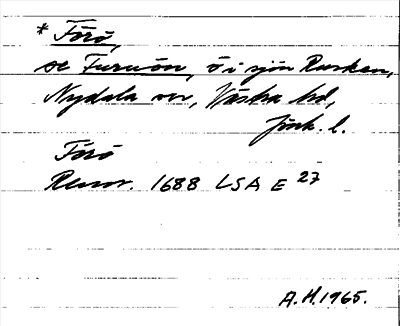 * Förö,
se Furuön, ö i sjön Rusken,
Nydala sn, Västra hd,
Jönk. l.
Förö
Renov. 1688 LSA E 27
A.H. 1965.